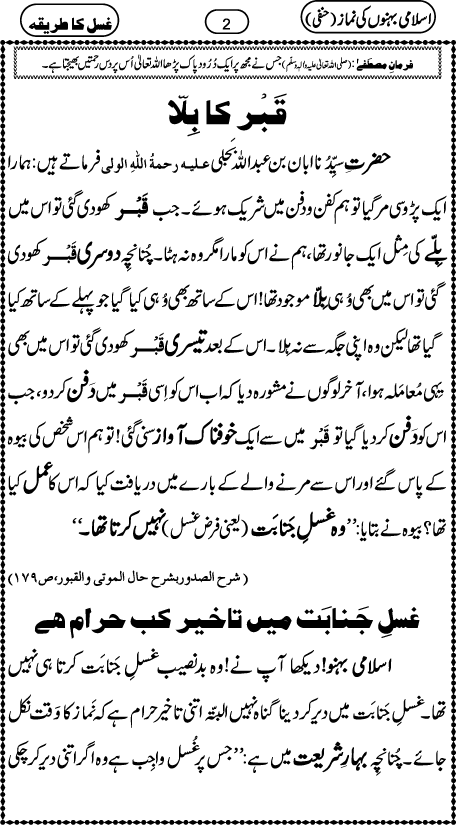 اسلامی بہنوں کی نماز (حنفی)
2
غسل کا طریقہ
فرمانِ مصطفیٰ: (صلی اللہ تعالیٰ علیہ والہٖ وسلم) جس نے مجھ پر ایک دُرُود پاک پڑھا اللہ تعالیٰ اُس پر دس رحمتیں بھیجتا ہے۔
قَبْر کا بِلّا
حضرتِ سیِّدُنا ابان بن عبداللہ بَجَلی علیہ رحمۃُ اللہِ الولی فرماتے ہیں: ہمارا
ایک پڑوسی مر گیا تو ہم کفن و دفن میں شریک ہوئے۔ جب قَبْر کھودی گئی تو اس میں
بِلّے کی مِثل ایک جانور تھا، ہم نے اس کو مارا مگر وہ نہ ہٹا۔ چُنانچِہ دوسری قَبْر کھودی
گئی تو اس میں بھی وُہی بِلّا موجود تھا! اس کے ساتھ بھی وُہی کیا گیا جو پہلے کے ساتھ کیا
گیا تھا لیکن وہ اپنی جگہ سے نہ ہلا۔ اس کے بعد تیسری قَبْر کھودی گئی تو اس میں بھی
یہی مُعامَلہ ہوا، آخر لوگوں نے مشورہ دیا کہ اب اس کو اِسی قَبْر میں دَفن کردو، جب
اس کو دَفن کر دیا گیا تو قَبْر میں سے ایک خوفناک آواز سنی گئی! تو ہم اس شخص کی بیوہ
کے پاس گئے اور اس سے مرنے والے کے بارے میں دریافت کیا کہ اس کا عمل کیا
تھا؟ بیوہ نے بتایا: ’’وہ غسلِ جَنابَت (یعنی فرض غسل) نہیں کرتا تھا۔‘‘
(شرح الصدور بشرح حال الموتٰی والقبور، ص۱۷۹)
غسلِ جَنابَت میں تاخیر کب حرام ہے
اسلامی بہنو! دیکھا آپ نے! وہ بدنصیب غسلِ جَنابَت کرتا ہی نہیں
تھا۔ غسلِ جَنابَت میں دیر کر دینا گناہ نہیں البتّہ اتنی تاخیر حرام ہے کہ نَماز کا وَقت نکل
جائے۔ چُنانچِہ بہارِ شریعت میں ہے: ’’جس پر غُسل واجِب ہے وہ اگر اتنی دیر کر چکی